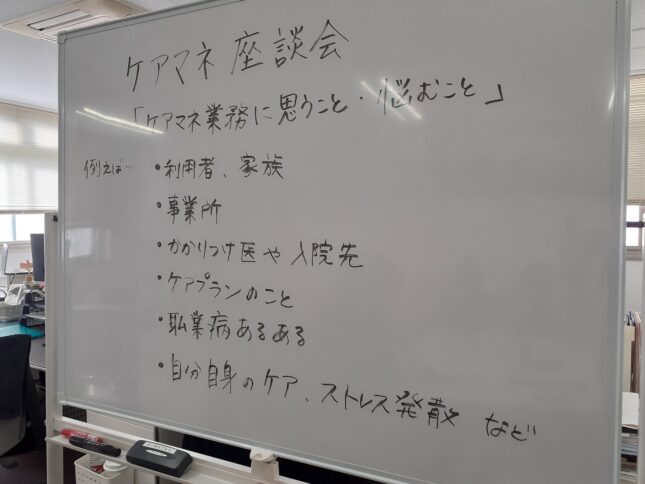 ケアマネ 座談会
「ケアマネ業務に思うこと・悩むこと」
例えば… ・利用者、家族
・事業所
・かかりつけ医や入院先
・ケアプランのこと
・職業病あるある
・自分自身のケア、ストレス発散 など